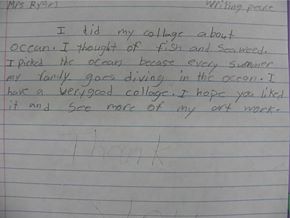 Mrs Ryan Writing peice
I did my collage about
ocean. I thought of fish and seaweed.
I picked the ocean becase every summer
my family goes diving in the ocean. I
have a verygood collage. I hope you liked
it and see more of my art work.
Thank